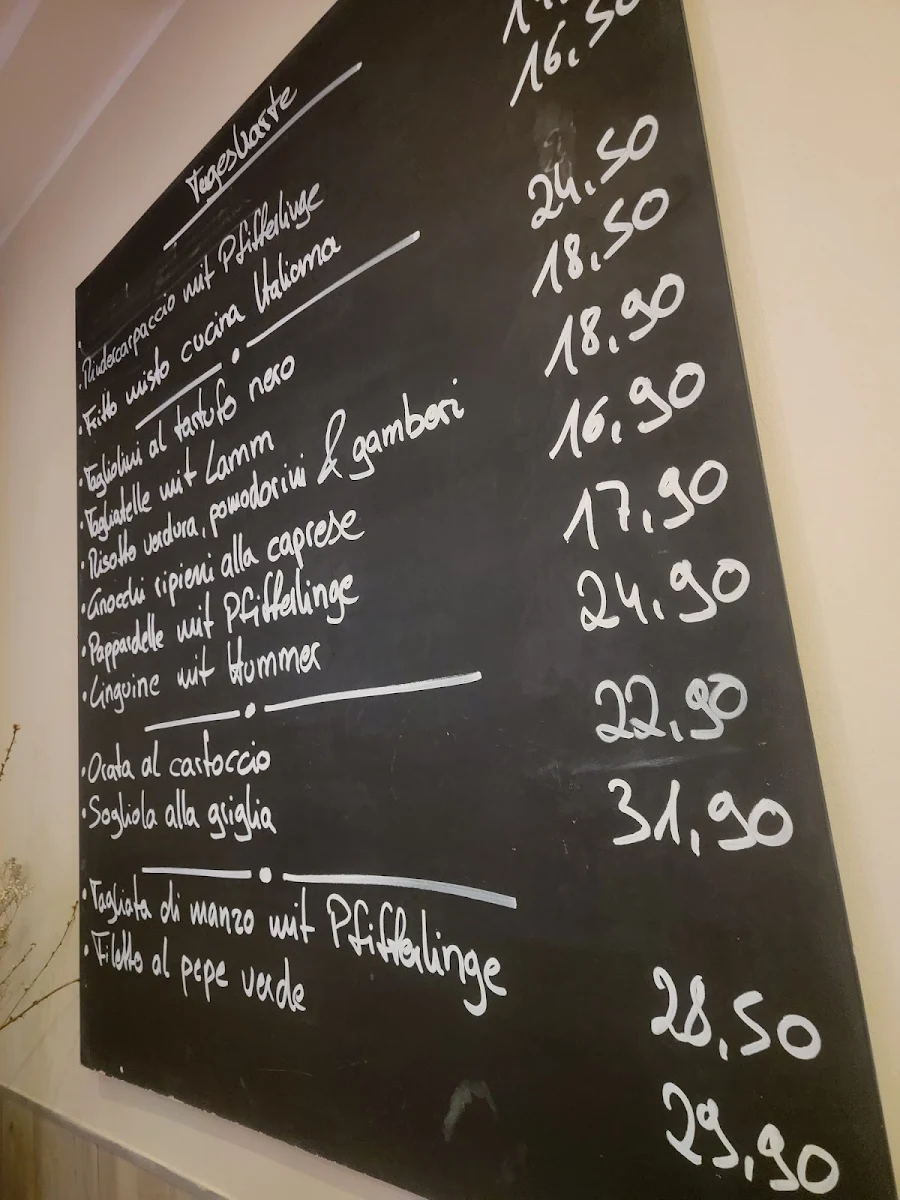 Tageskarte
·Rindercarpaccio mit Pfifferlinge
·Fritto misto cucina Italiana 16,50
·Tagliolini al tartufo nero 24,50
·Tagliatelle mit Lamm 18,50
·Risotto verdura, pomodorini & gamberi 18,90
·Gnocchi ripieni alla caprese 16,90
·Pappardelle mit Pfifferlinge 17,90
·Linguine mit Hummer 24,90
·Orata al cartoccio 22,90
·Sogliola alla griglia 31,90
·Tagliata di manzo mit Pfifferlinge 28,50
·Filetto al pepe verde 29,90